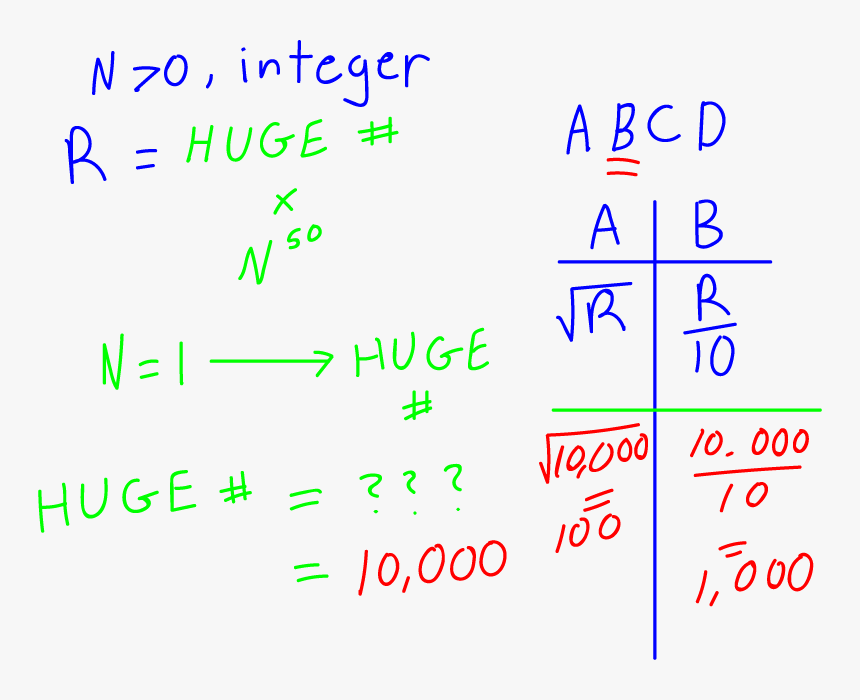 N>0, integer
R = HUGE #
x
N^50
N=1 → HUGE
#
HUGE # = ? ? ?
= 10,000
A B C D
A B
√R R/10
√10,000 10.000/10
= =
100 1,000